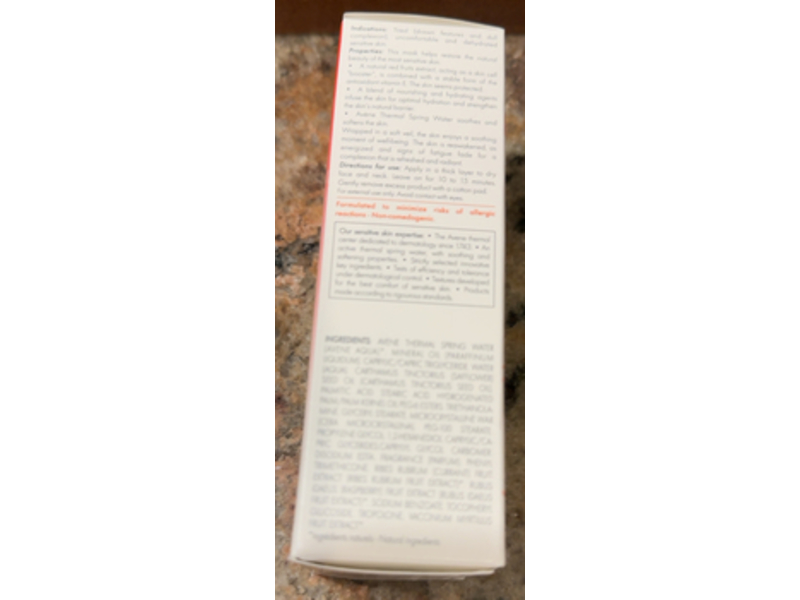 Indications: Tired, features and dull
complexions, uncomfortable and dehydrated
sensitive skin.
Properties: This mask helps restore the natural
beauty of the most sensitive skin:
• A natural red fruits extract, acting as a skin cell
"booster", is combined with a stable form of the
antioxidant vitamin E. The skin seems protected.
• A blend of nourishing and hydrating agents
infuse the skin for optimal hydration and strengthen
the skin's natural barrier.
• Avène Thermal Spring Water soothes and
softens the skin.
Wrapped in a soft veil, the skin enjoys a soothing
moment of well-being. The skin is reawakened, re-
energized and signs of fatigue fade for a
complexion that is refreshed and radiant.
Directions for use: Apply in a thick layer to dry
face and neck. Leave on for 10 to 15 minutes.
Gently remove excess product with a cotton pad.
For external use only. Avoid contact with eyes.
Formulated to minimize risks of allergic
reactions - Non-comedogenic.
Our sensitive skin expertise: • The Avène thermal
center dedicated to dermatology since 1743. • An
active thermal spring water, with soothing and
softening properties. • Strictly selected innovative
key ingredients. • Tests of efficiency and tolerance
under dermatological control. • Textures developed
for the best comfort of sensitive skin. • Products
made according to rigourous standards.
INGREDIENTS: AVENE THERMAL SPRING WATER
(AVENE AQUA)*. MINERAL OIL (PARAFFINUM
LIQUIDUM). CAPRYLIC/CAPRIC TRIGLYCERIDE. WATER
(AQUA). CARTHAMUS TINCTORIUS (SAFFLOWER)
SEED OIL (CARTHAMUS TINCTORIUS SEED OIL).
PALMITIC ACID. STEARIC ACID. HYDROGENATED
PALM/PALM KERNEL OIL PEG-6 ESTERS. TRIETHANOLA
MINE. GLYCERYL STEARATE. MICROCRYSTALLINE WAX
(CERA MICROCRISTALLINA). PEG-100 STEARATE.
PROPYLENE GLYCOL. CAPRYLIC/CA
PRIC GLYCERIDES. CAPRYLYL GLYCOL. CARBOMER.
DISODIUM EDTA. FRAGRANCE (PARFUM). PHENYL
TRIMETHICONE. RIBES RUBRUM (CURRANT) FRUIT
EXTRACT (RIBES RUBRUM FRUIT EXTRACT)*. RUBUS
IDAEUS (RASPBERRY) FRUIT EXTRACT (RUBUS IDAEUS
FRUIT EXTRACT)*. SODIUM BENZOATE. TOCOPHERYL
GLUCOSIDE. TROPOLONE. VACCINIUM MYRTILLUS
FRUIT EXTRACT*.
*Ingrédients naturels - Natural ingredients